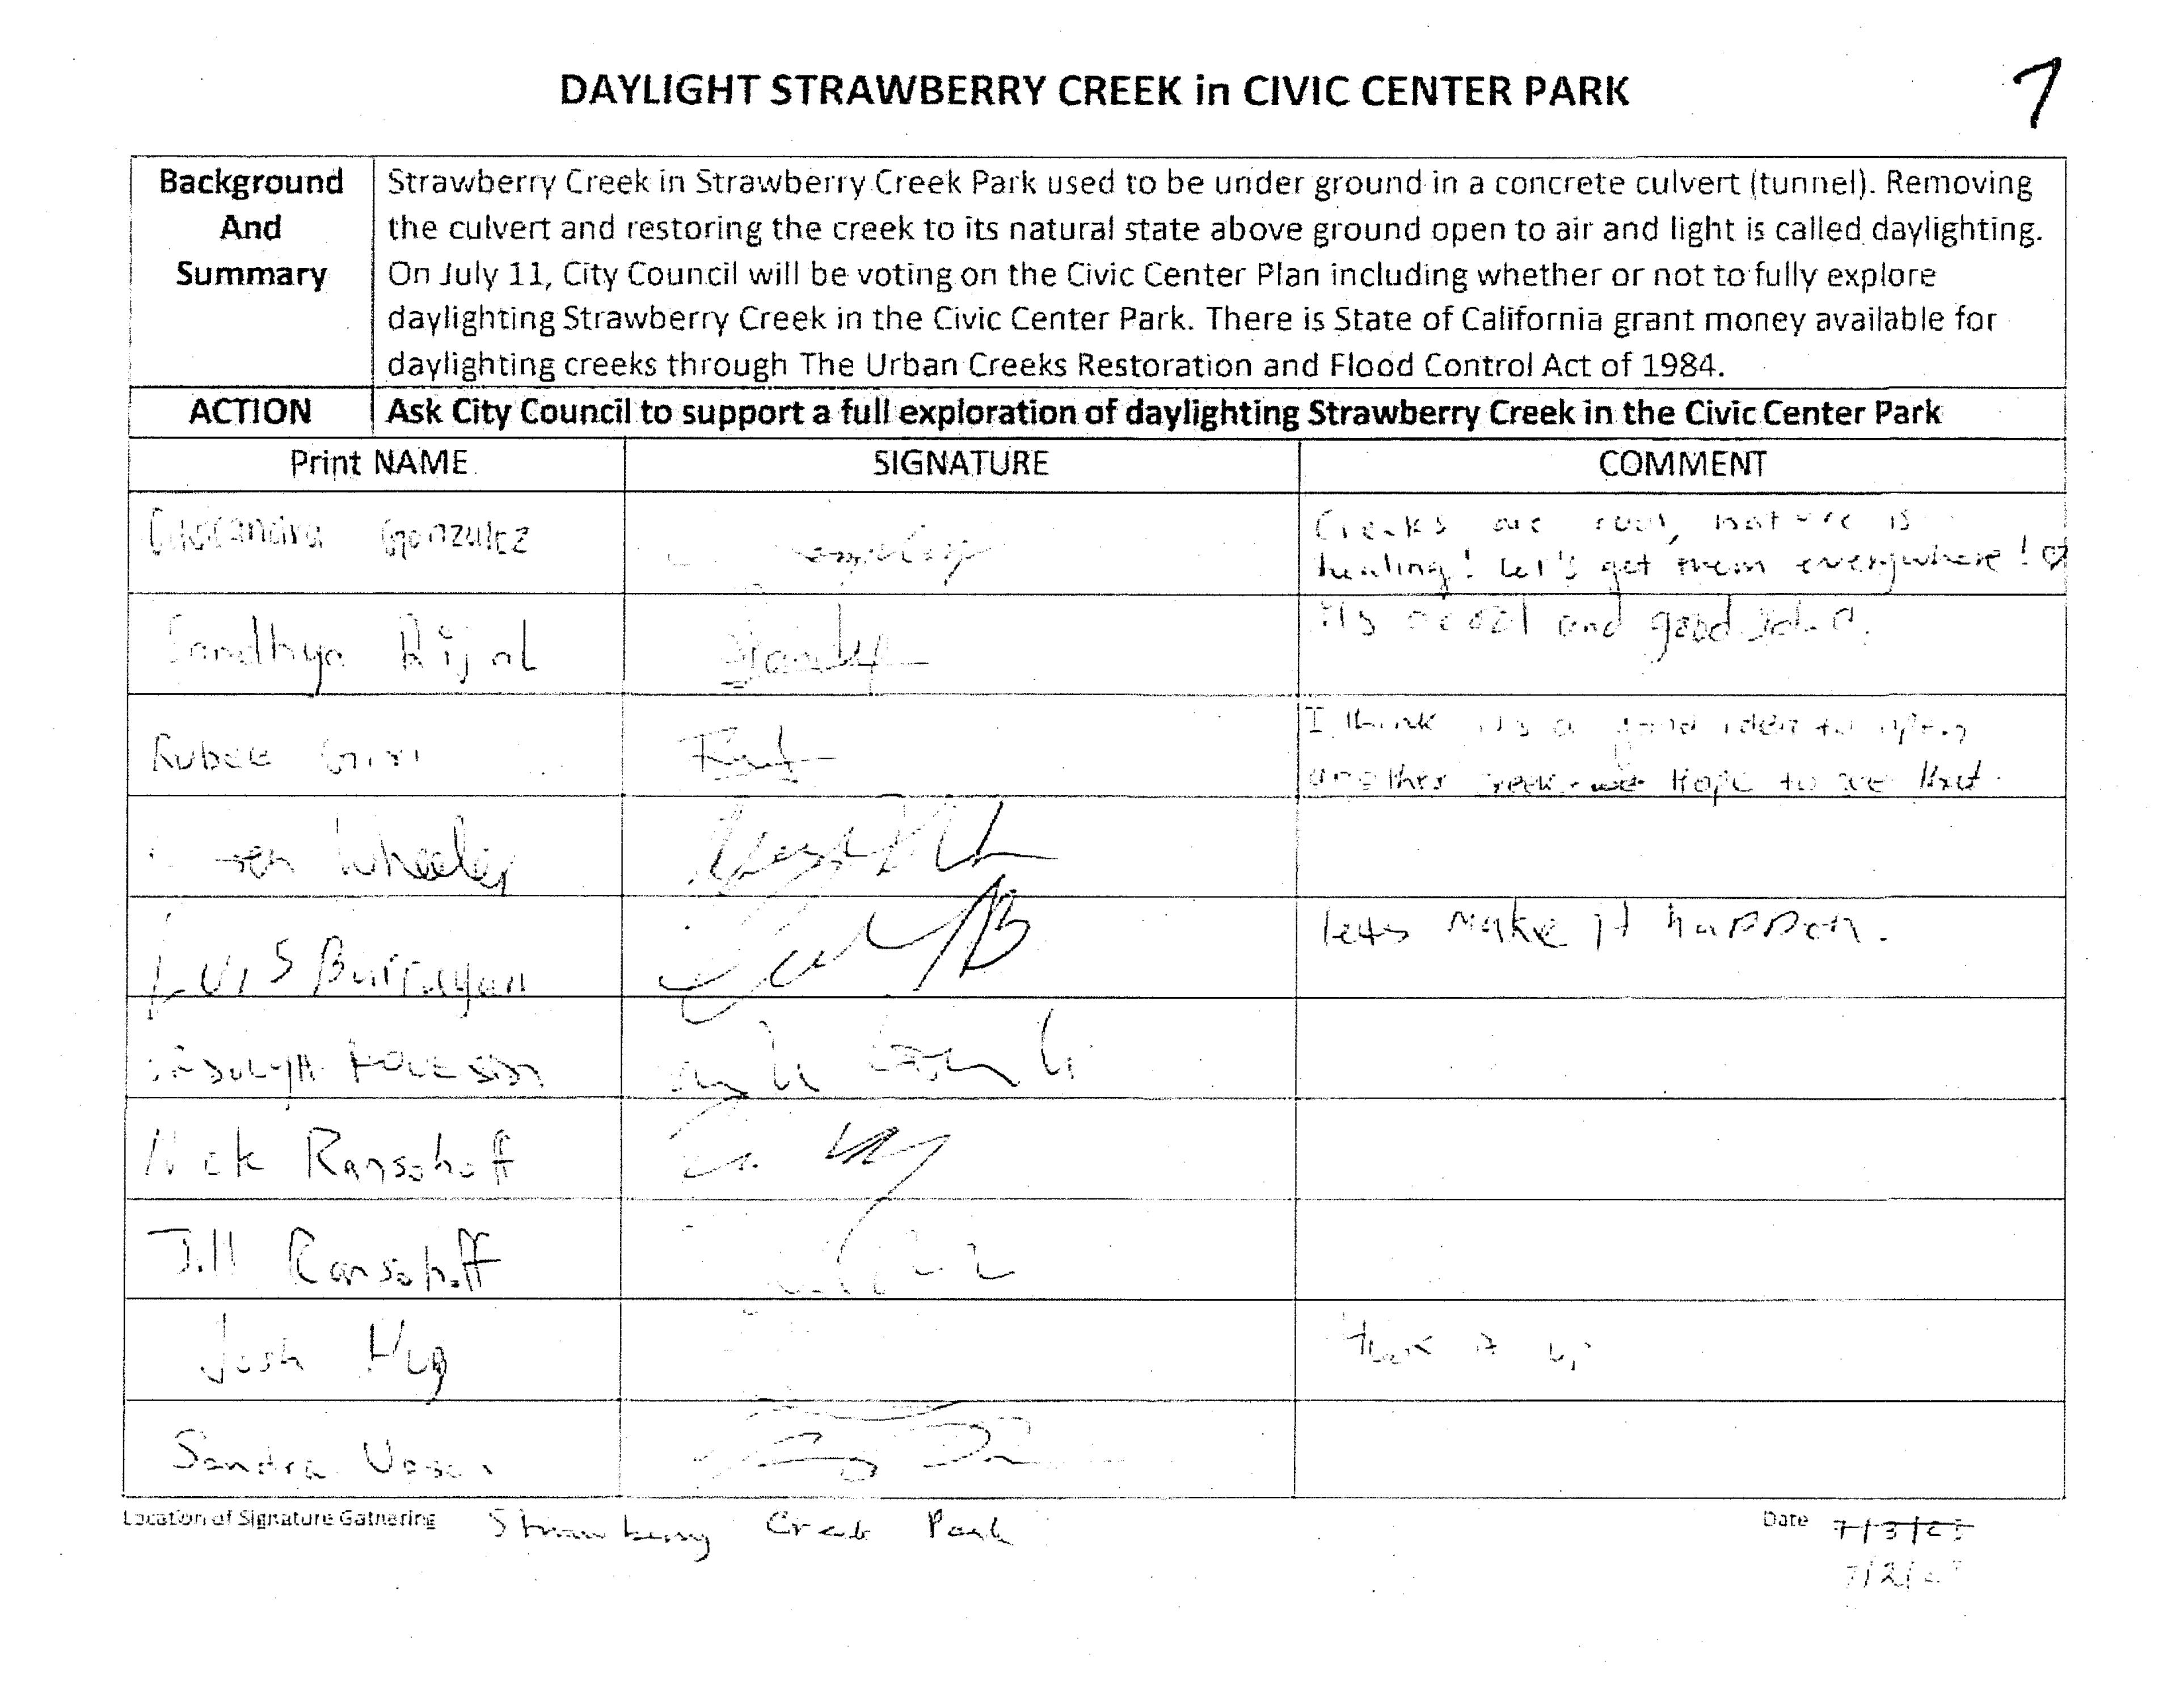 DAYLIGHT STRAWBERRY CREEK in CIVIC CENTER PARK
7
Background And Summary
Strawberry Creek in Strawberry Creek Park used to be under ground in a concrete culvert (tunnel). Removing
the culvert and restoring the creek to its natural state above ground open to air and light is called daylighting.
On July 11, City Council will be voting on the Civic Center Plan including whether or not to fully explore
daylighting Strawberry Creek in the Civic Center Park. There is State of California grant money available for
daylighting creeks through The Urban Creeks Restoration and Flood Control Act of 1984.
ACTION Ask City Council to support a full exploration of daylighting Strawberry Creek in the Civic Center Park
Print NAME SIGNATURE COMMENT
Gonzalez
Creeks are cool, nature is
healing! Let's get them everywhere!
Sandhya Rijal
and good
Rubee Giri
I think its a good idea
Hope to see that.
Wheeler
Luis Barragan
lets make it happen.
Nick Ransohoff
Jill Ransohoff
Josh Hug
it up
Sandra
Location of Signature Gathering Strawberry Creek Park
Date 7/3/23
7/2/23